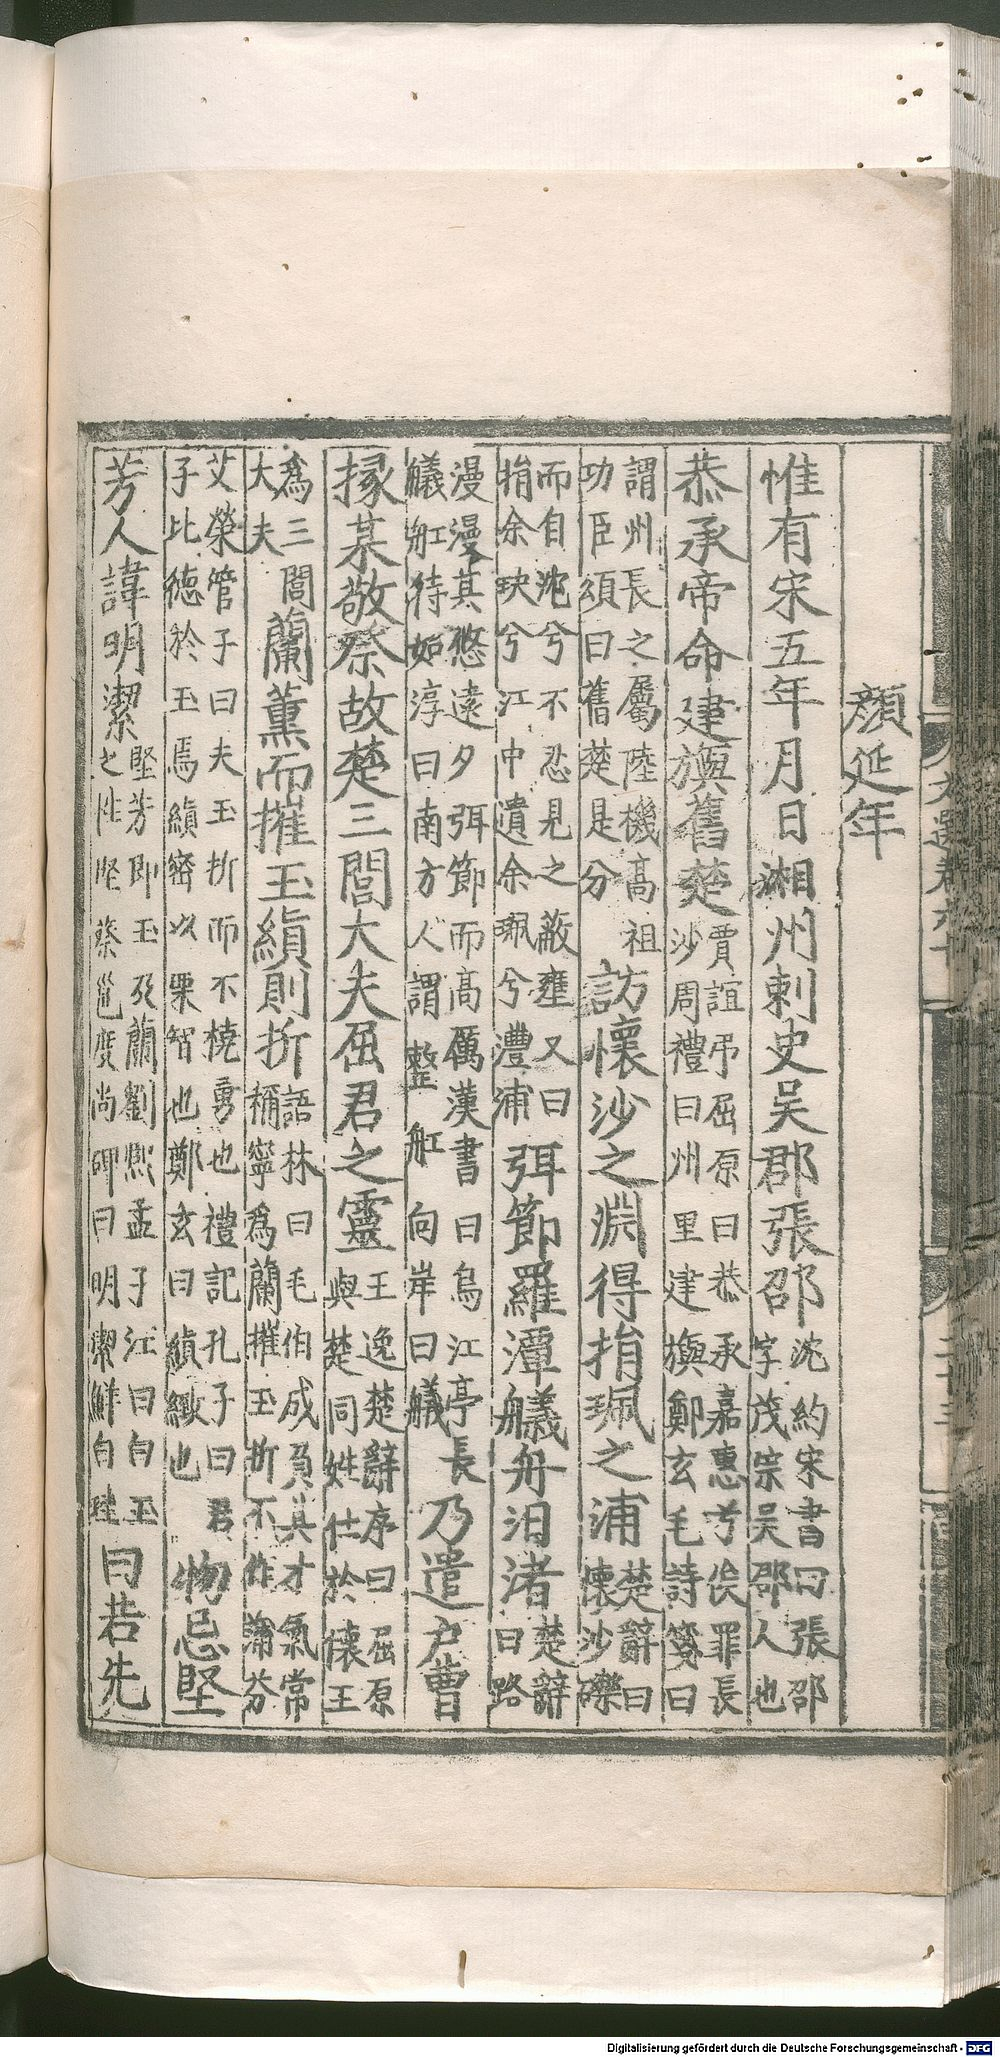 顏延年
惟有宋五年月日湘州刺史吴郡張邵沈約宋書曰張邵字茂宗吴郡人也
恭承帝命建旟舊楚賈誼弔屈原曰恭承嘉惠兮俟罪長沙周禮曰州里建旟鄭玄毛詩箋曰
謂州長之屬陸機髙祖功臣頌曰舊楚是分訪懷沙之淵得捐珮之浦楚辭曰懷沙礫
而自沈兮不忍見之蔽壅又曰捐余玦兮江中遺余珮兮澧浦弭節羅潭艤舟汨渚楚辭曰路
漫漫其悠遠夕弭節而髙厲漢書曰烏江亭長艤舡待如淳曰南方人謂整舡向岸曰艤乃遣户曹
掾某敬祭故楚三閭大夫屈君之靈王逸楚辭序曰屈原與楚同姓仕於懷王
爲三閭大夫蘭薰而摧玉縝則折語林曰毛伯成負其才氣常稱寧爲蘭摧玉折不作蒲芬
艾榮管子曰夫玉折而不橈勇也禮記孔子曰君子比德於玉焉縝密以栗智也鄭玄曰縝緻也物忌堅
芳人諱明潔堅芳即玉及蘭劉熙孟子注曰白玉之性堅蔡邕度尚碑曰明潔鮮白珪曰若先
文選卷六十
二十三
Digitalisierung gefördert durch die Deutsche Forschungsgemeinschaft - DFG